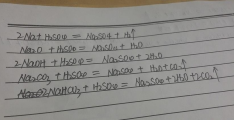 2Na+H₂SO₄ = Na₂SO₄+H₂↑
Na₂O + H₂SO₄ = Na₂SO₄+H₂O
2NaOH+H₂SO₄ = Na₂SO₄+2H₂O
Na₂CO₃ + H₂SO₄ = Na₂SO₄ + H₂O+CO₂↑
2NaHCO₃ + H₂SO₄ = Na₂SO₄+2H₂O+2CO₂↑